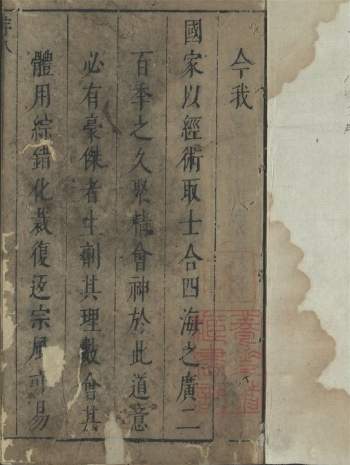 今我
國家以經術取士合四海之廣二
百年之久聚精會神於此道意
必有豪傑者生劑其理數會其
體用綜錯化裁復返宗風亦易
序八